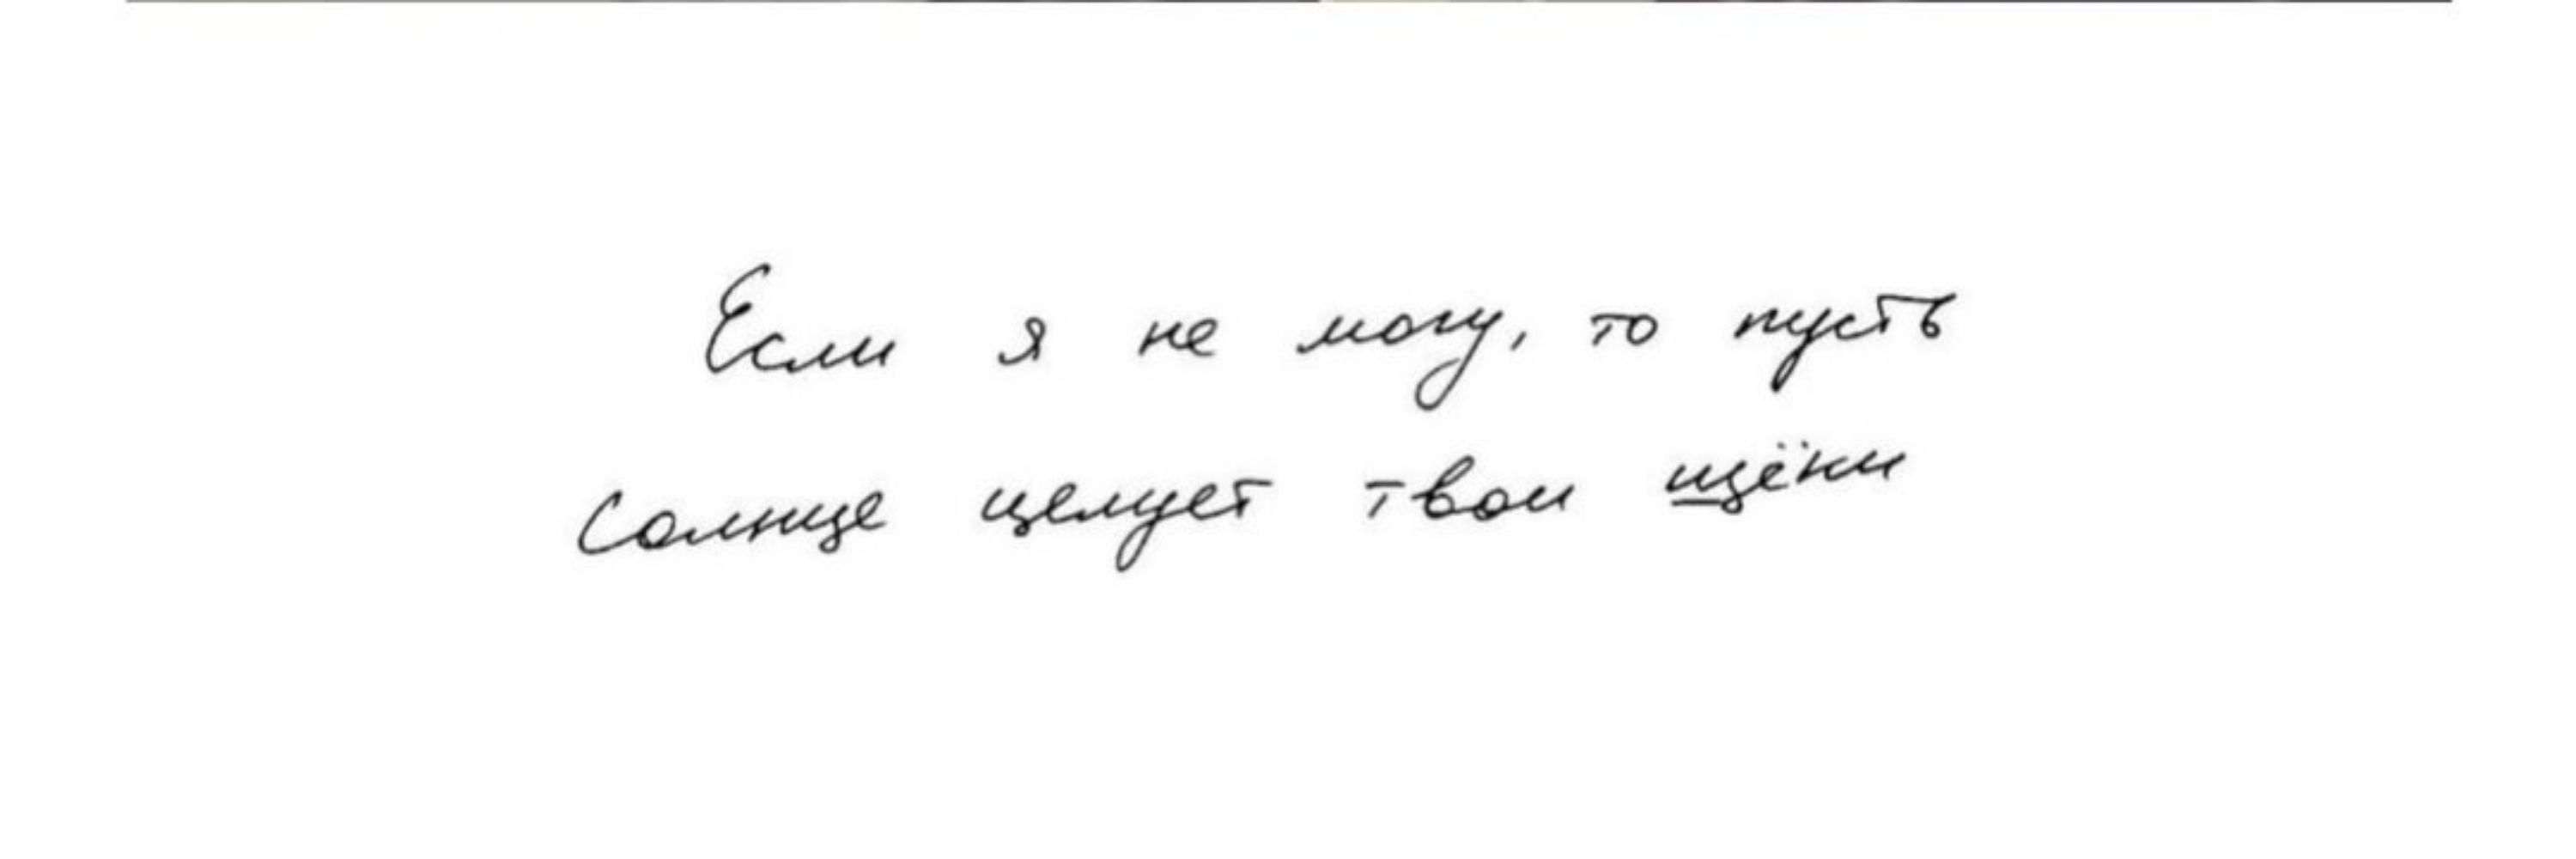 Если я не могу, то пусть
солнце целует твои щёки